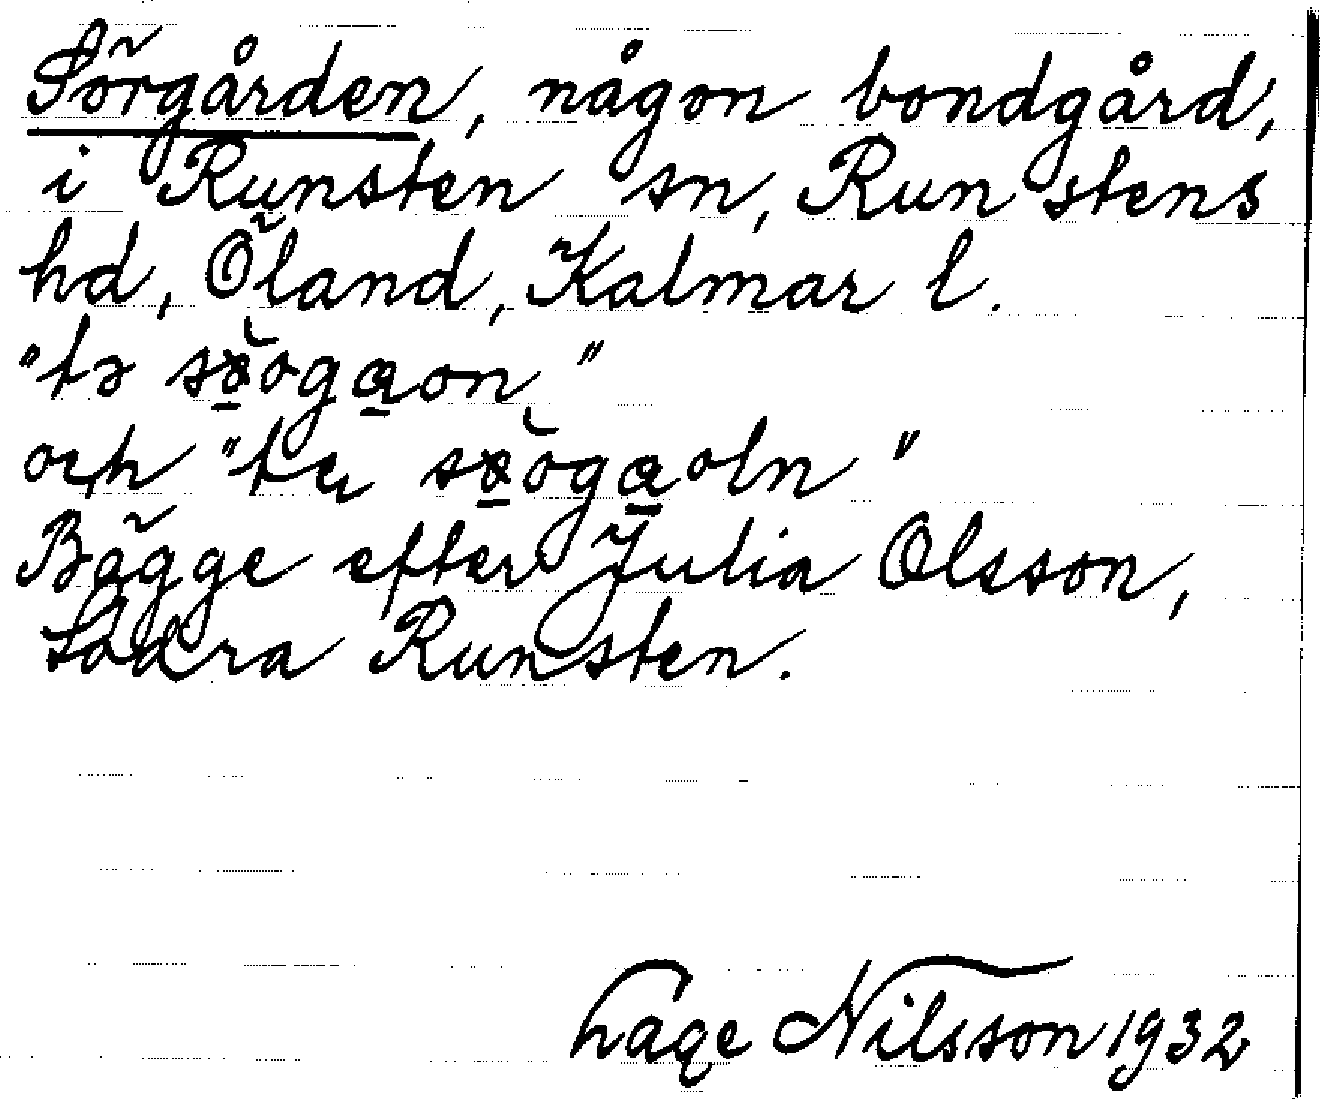 Sörgården, någon bondgård,
i Runsten sn, Runstens
hd, Öland, Kalmar l.
och
Bägge efter Julia Olsson,
Södra Runsten.
Nilsson 1932